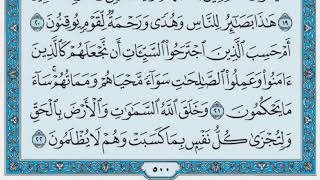 ١٩ هَٰذَا بَصَائِرُ لِلنَّاسِ وَهُدًى وَرَحْمَةٌ لِّقَوْمٍ يُوقِنُونَ ٢٠
أَمْ حَسِبَ الَّذِينَ اجْتَرَحُوا السَّيِّئَاتِ أَن نَّجْعَلَهُمْ كَالَّذِينَ
ءَامَنُوا وَعَمِلُوا الصَّالِحَاتِ سَوَاءً مَّحْيَاهُمْ وَمَمَاتُهُمْ سَاءَ
مَا يَحْكُمُونَ ٢١ وَخَلَقَ اللَّهُ السَّمَاوَاتِ وَالْأَرْضَ بِالْحَقِّ
وَلِتُجْزَىٰ كُلُّ نَفْسٍ بِمَا كَسَبَتْ وَهُمْ لَا يُظْلَمُونَ ٢٢
٥٠٠